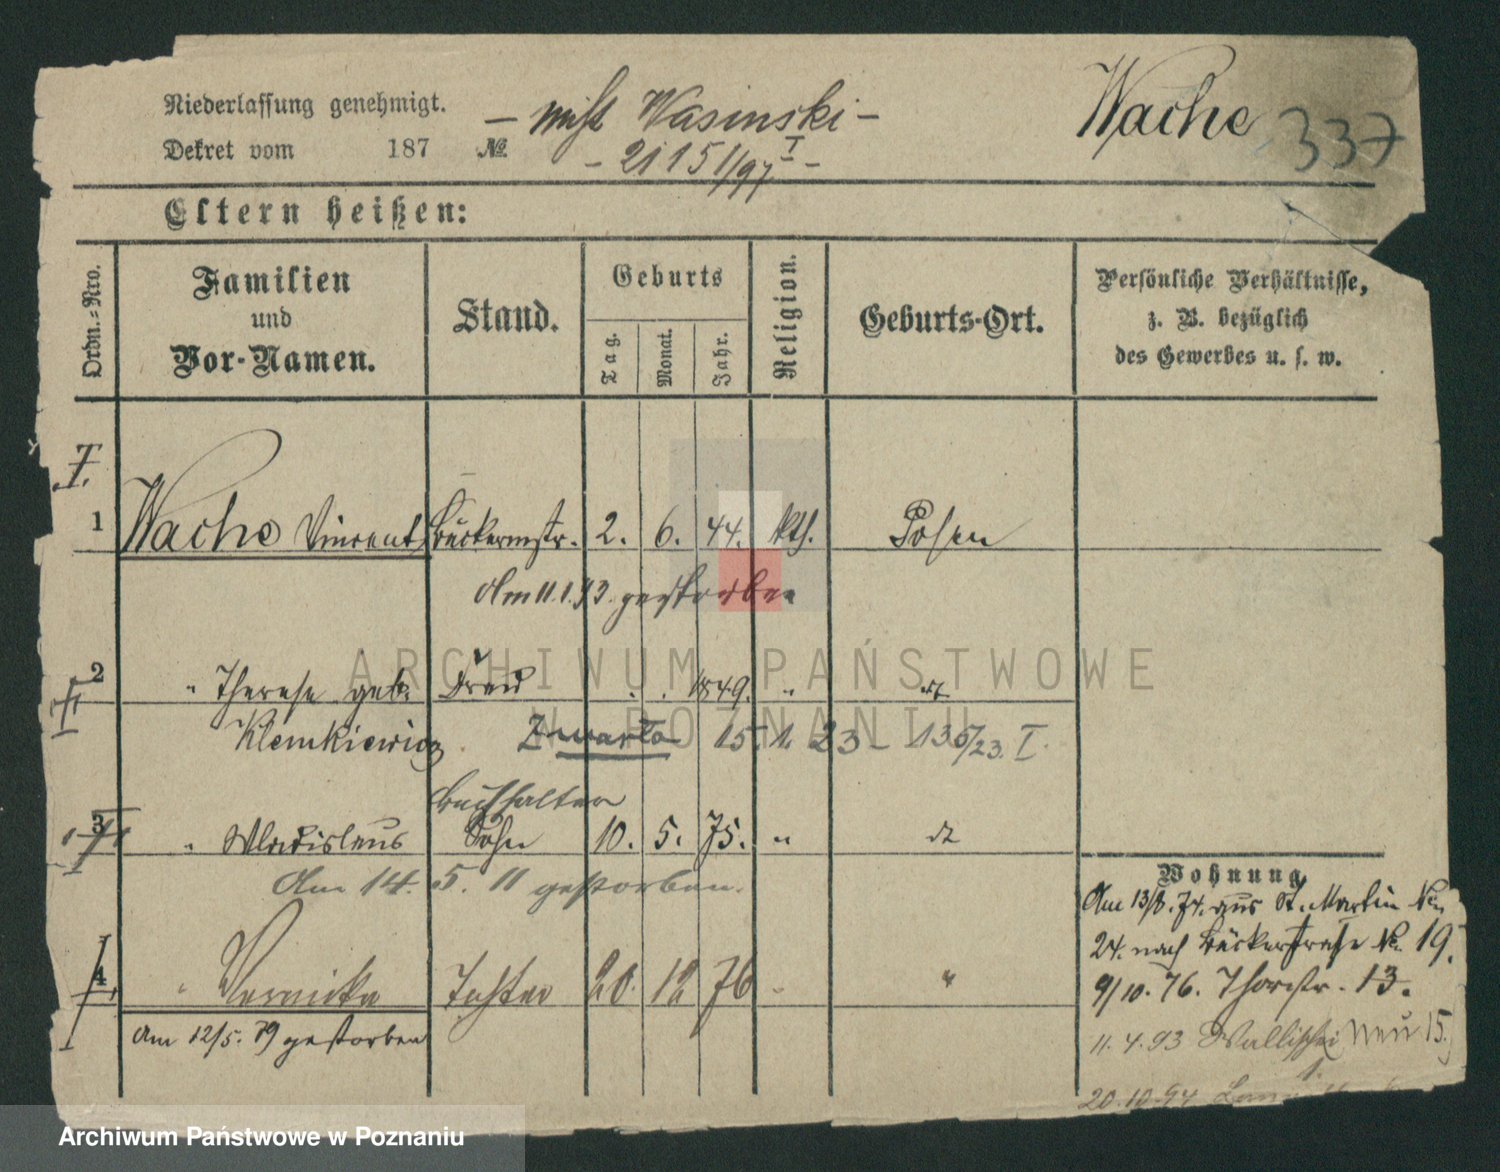 Niederlassung genehmigt.
Dekret vom 187 №
– nicht Wasinski –
– 2115 I/97 –
Wache
337
Eltern heißen:
Ordn.-Nro.
Familien und Vor-Namen.
Stand.
Geburts
Tag.
Monat.
Jahr.
Religion.
Geburts-Ort.
Persönliche Verhältnisse, z. B. bezüglich des Gewerbes u. s. w.
1 Wache Vincent Bäckermstr. 2. 6. 44. kth. Posen
Am 11.1.93. gestorben
2 " Therese geb. Frau . . 1849. " dt
Klemkiewicz. Zwarta 15. 1. 23 – 136/23. I.
Buchhalter
3 " Wladislaus Sohn 10. 5. 75. " dt
Am 14. 5. 11 gestorben.
4 " Veronika Tochter 20. 12 76 " "
Am 12/5. 79 gestorben
Wohnung
Am 13/8. 74. aus St. Martin No.
24. nach Bäckerstraße No. 19.
9/10. 76. Thorstr. 13.
11. 4. 93 Wallischei neu 15.
1.
20.10.94
ARCHIWUM PAŃSTWOWE
W POZNANIU
Archiwum Państwowe w Poznaniu